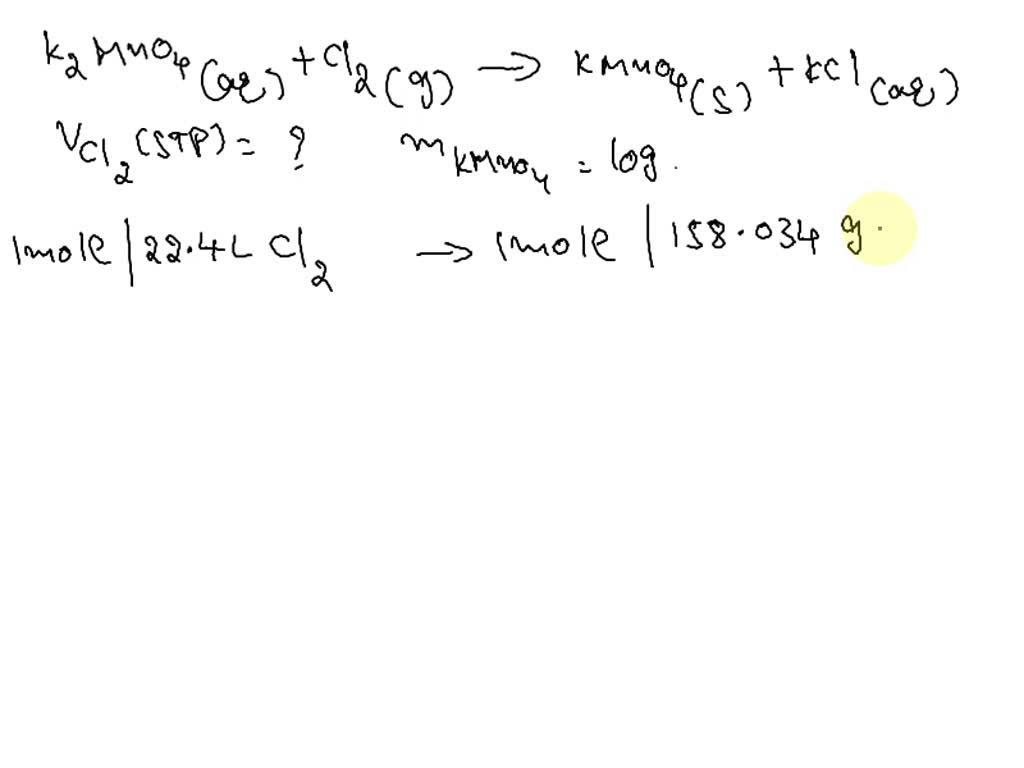 K₂MnO₄(aq) + Cl₂(g) → KMnO₄(s) + KCl(aq)
V_Cl₂(STP) = ? m_KMnO₄ = 10g.
1mole | 22.4L Cl₂ → 1mole | 158.034 g.